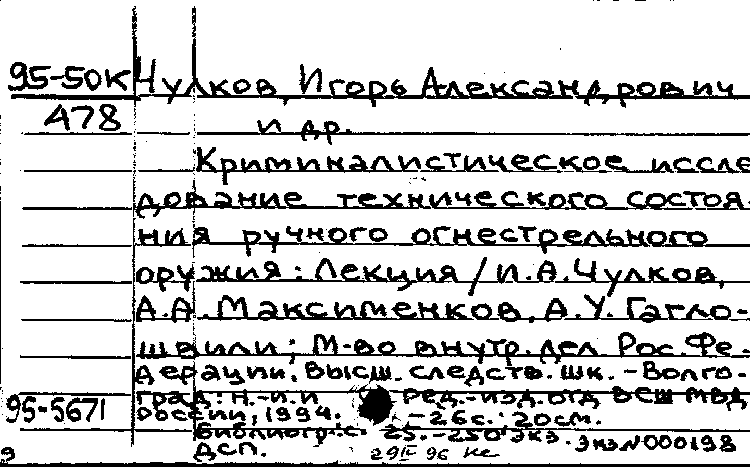 95-50К Чулков, Игорь Александрович
478 и др.
Криминалистическое иссле
дование технического состоя-
ния ручного огнестрельного
оружия: Лекция / И.А.Чулков,
А.А. Максименков, А.У. Гагло-
швили; М-во внутр. дел Рос. Фе-
дерации. Высш. следств. шк. - Волго-
град: Н.-и. и ред.-изд. отд ВСШ МВД
95-5671 России, 1994. -26с. 20см.
Библиогр.: с. 25. -250 экз. экз N000198
ДСП. 96